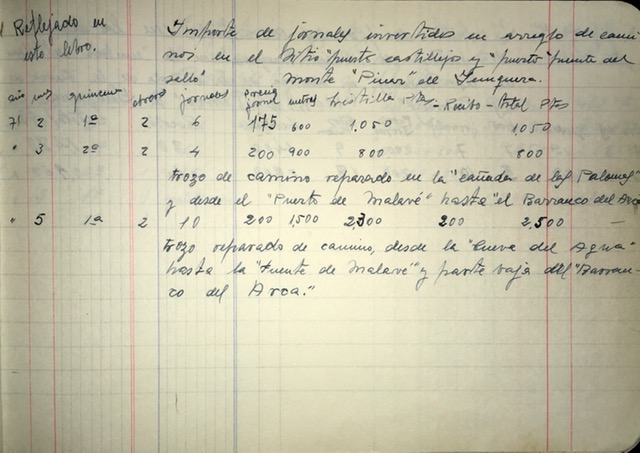 Reflejado en
este libro.
Importe de jornales invertidos en arreglo de cami-
nos en el sitio "puerto castillejos y "puerto" fuente del
monte "Pinar" de Yunquera.
año mes quincena obreros jornales precio jornal metros Ptas - Recibo - total Ptas
71 2 1ª 2 6 175 600 1,050 1,050
" 3 2ª 2 4 200 900 800 800
trozo de camino reparado en la "cañada de las Palomas"
y desde el "Puerto de Malavé" hasta "el Barranco del Arca
" 5 1ª 2 10 200 1,500 2,300 200 2,500 —
trozo reparado de camino, desde la "Cueva del Agua"
hasta la "Fuente de Malavé" y parte baja del "Barran-
co del Arca."